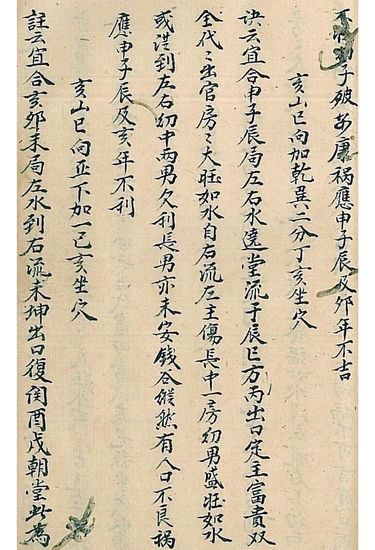 子破家康祸應申子辰及卯年不吉
亥山巳向加乾巽二分丁亥坐穴
决云宜合申子辰局左右水遶堂流于辰巳方丙出口定主富貴双
全代々出官房々大旺如水自右流左主傷長中一房幼男盛旺如水
或逆到左右幼中两男久利長男亦未安錢谷縱然有人口不良祸
應申子辰及亥年不利
亥山巳向正下加一巳亥坐穴
註云宜合亥卯未局左水到右流未坤出口復関酉戌朝堂此為